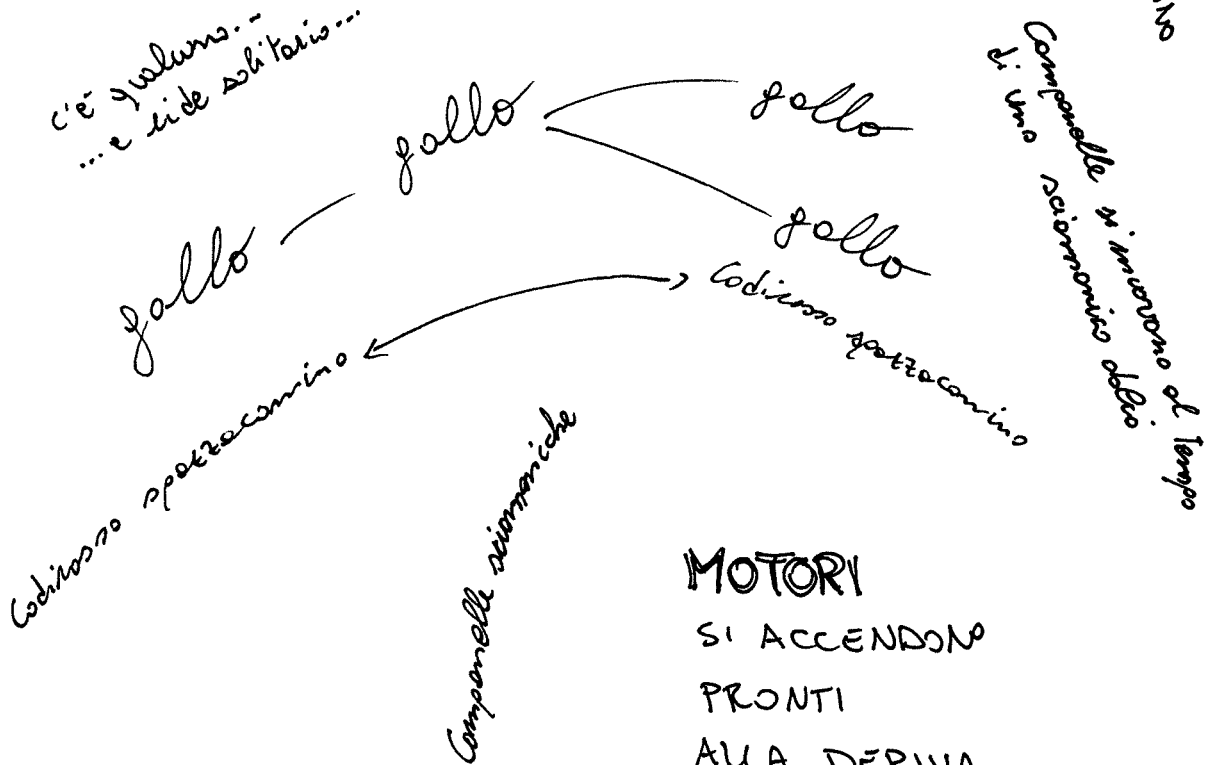 c'è qualcuno...
... e ride solitario...
gallo
gallo
gallo
gallo
Codirosso spazzacamino
Codirosso spazzacamino
Campanelle sciamaniche
Campanelle si muovono al tempo
di uno sciamanico dolio
MOTORI
SI ACCENDONO
PRONTI
ALLA DERIVA